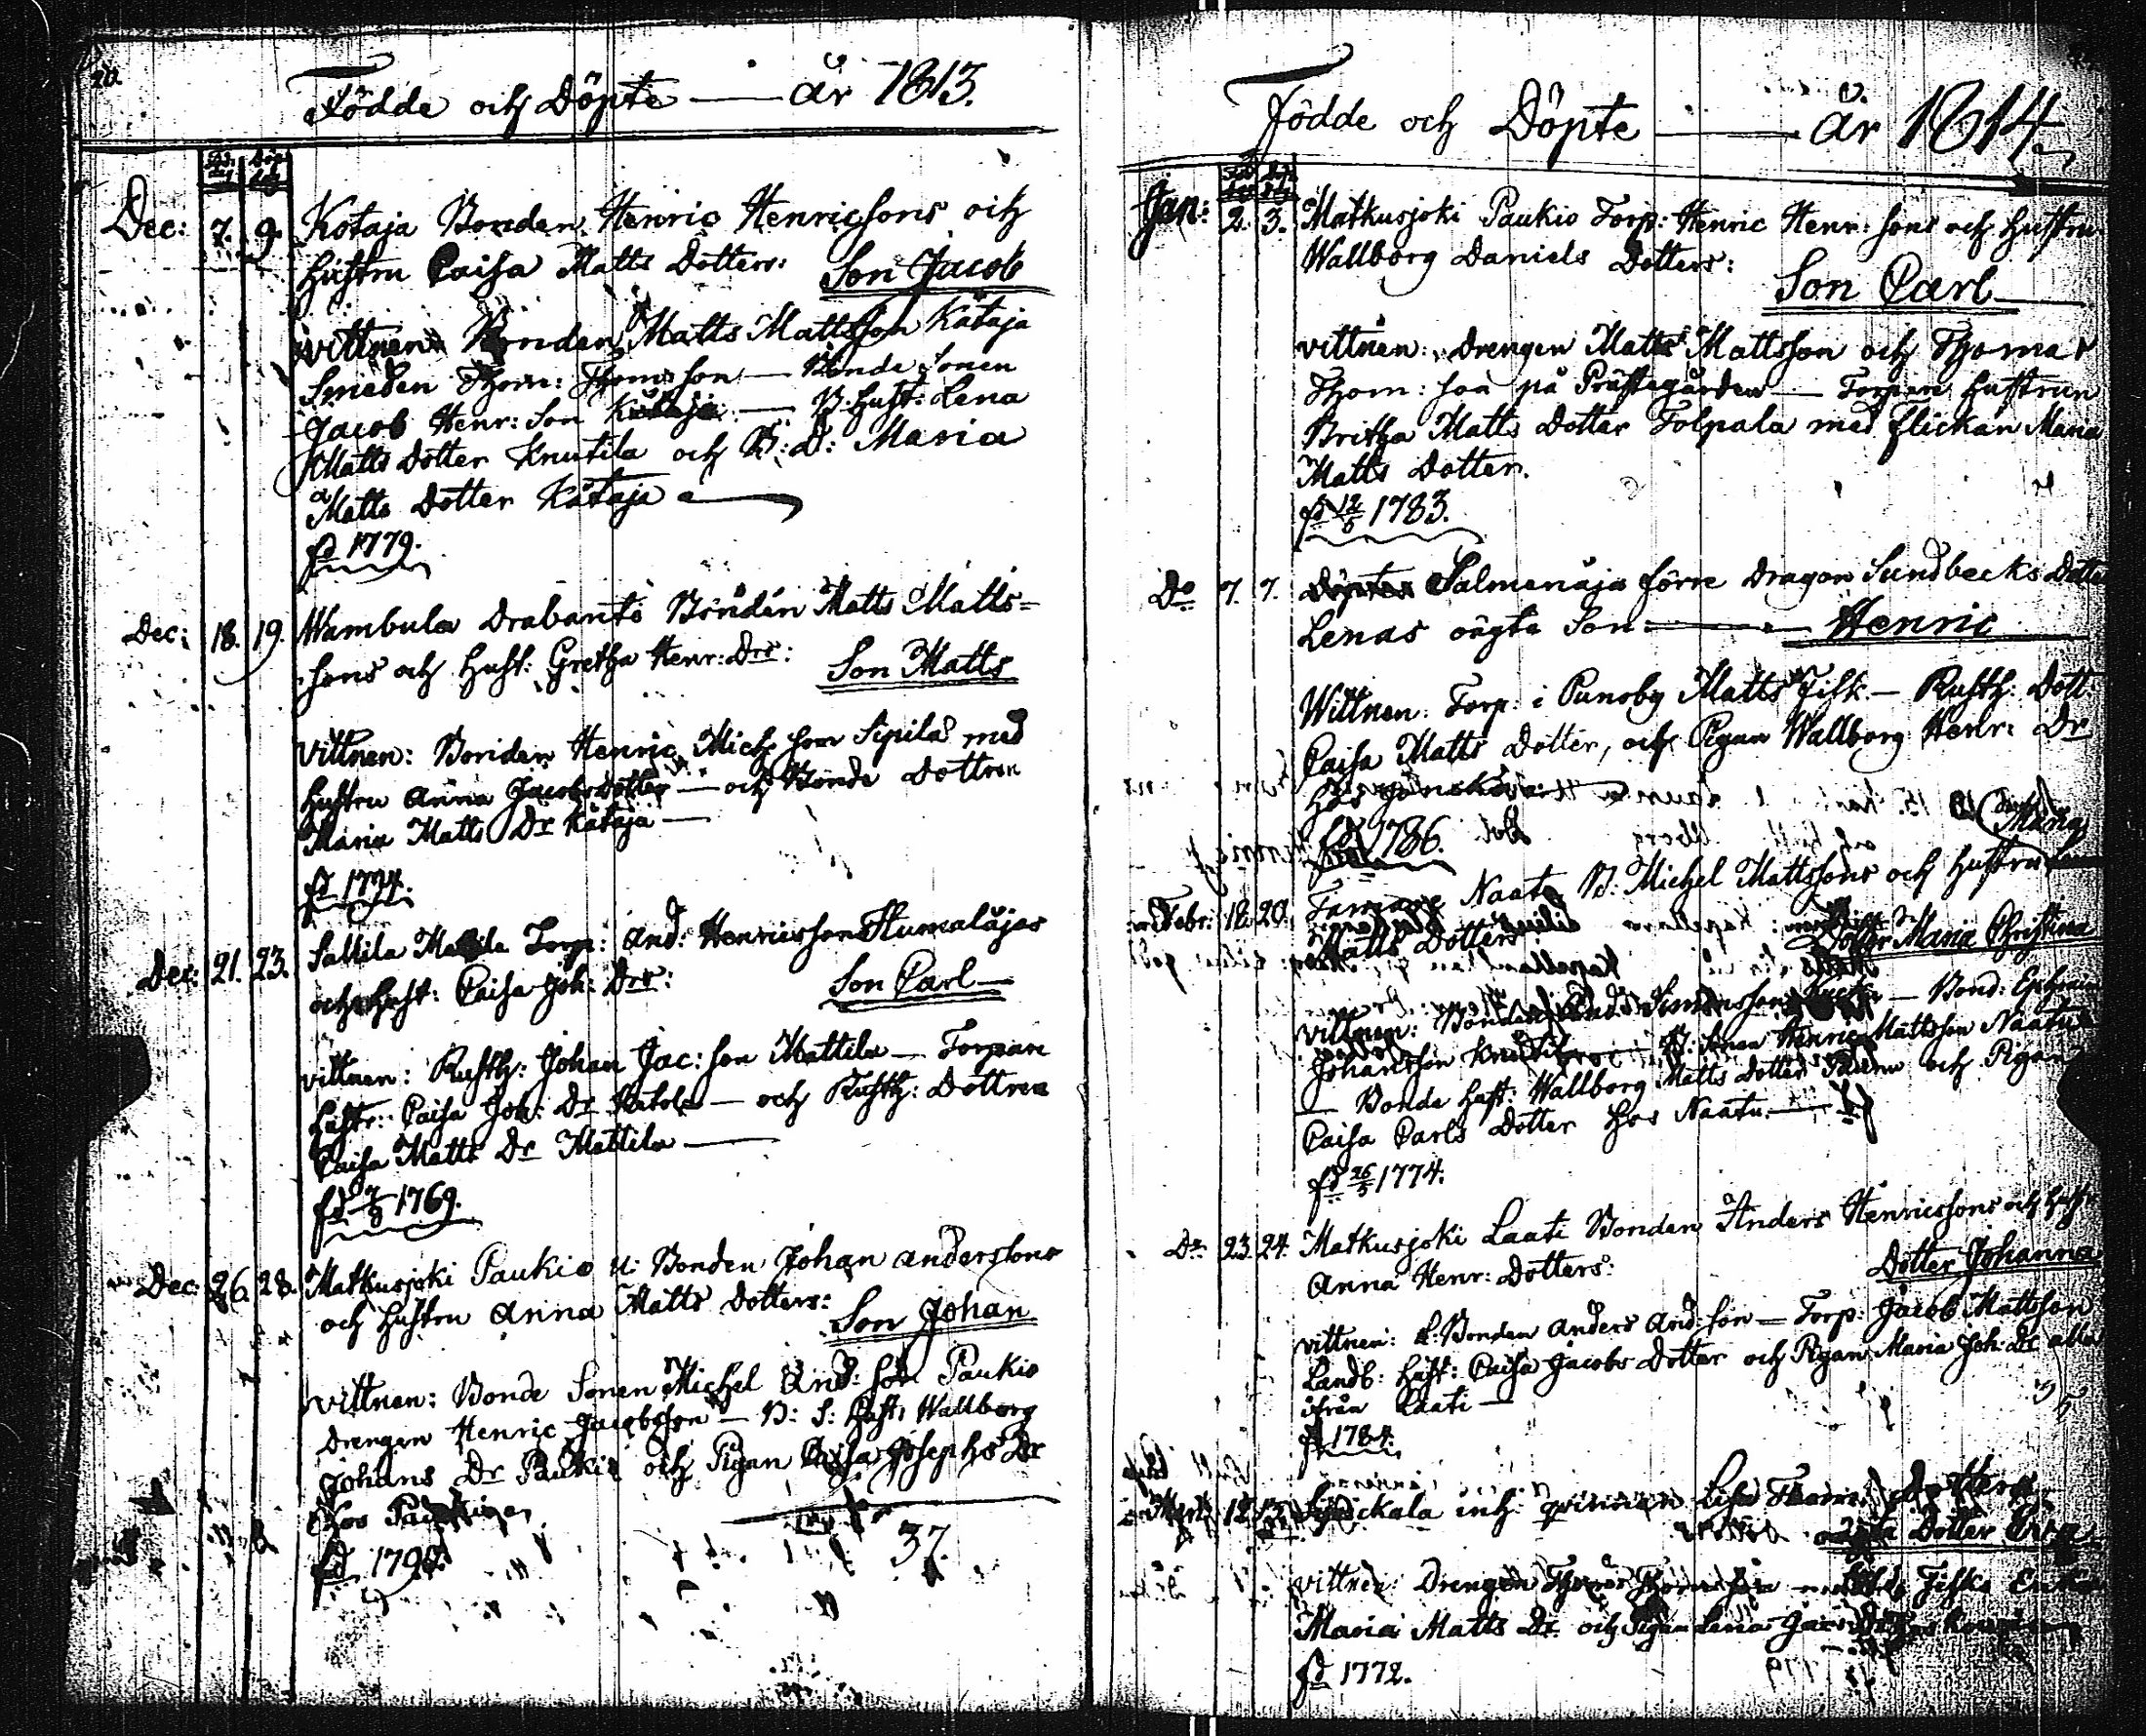 20.
Födde och Döpte — år 1813.
Föd. dag Döp. dag
Dec: 7. 9. Kotaja Bonden Henric Henricsons och
hustru Caisa Matts Dotters: Son Jacob
vittnen Bonden Matts Mattsson Kätaja
Smeden Thom: Thomsson — Bonde Sonen
Jacob Henr: Son — B. hust: Lena
Matts Dotter Knutila och B: D: Maria
Matts Dotter Kätaja —
fd 1779.
Dec: 18. 19. Wambula Drabants Bonden Matts Matts-
sons och hust: Gretha Henr: Drs: Son Matts
Vittnen: Bonden Henric Mich son Sipilä med
hustru Anna Jacobs Dotter — och Bonde Dottren
Maria Matts Dr Kätaja —
fd 1774.
Dec: 21. 23. Sallila Torp: And: Henricsson Humalajas
och hust: Caisa Joh: Drs: Son Carl
vittnen: Rusth: Johan Jac: son Mattila — Torpare
hustr: Caisa Joh: Dr — och Rusth: Dottren
Caisa Matts Dr Mattila —
fd 1769.
Dec: 26. 28. Matkusjoki Paukio U: Bonden Johan Anderssons
och hustru Anna Matts Dotters: Son Johan
vittnen: Bonde Sonen Michel And: son Paukio
Drengen Henric Jacobsson — B: S: hust: Wallborg
Johans Dr Paukio och Pigan Caisa Josephs Dr
hos
fd 1790
37.
Födde och Döpte — år 1814.
Jan: 2. 3. Matkusjoki Paukio Torp: Henric Henr: sons och hustru
Wallborg Daniels Dotters: Son Carl
vittnen: Drengen Matts Mattsson och Thomas
Thom: son på Prästegården — Torpare hustrun
Britha Matts Dotter Tolpala med flickan Maria
Matts Dotter.
fd 12/6 1783.
Do 7. 7. Salmenäja förre Dragon Sundbecks Dotter
Lenas oägta Son — Henric
Wittnen: Torp: i Punsby Matts Fisk — Rusth: Dott:
Caisa Matts Dotter, och Pigan Wallborg Henr: Dr
hos
fd 1786.
Maria
Febr: 18. 20. Tamare Naatu B: Michel Mattssons och hustru
Matts Dotters Dotter Maria Christina
vittnen: Bonden And: Simonsson — Bond: Ephraim
Johansson — B: Sonen Henric Mattsson Naatu
— Bonde hust: Wallborg Matts Dotter och Pigan
Caisa Carls Dotter hos Naatu —
fd 26/5 1774.
Do 23. 24. Matkusjoki Laati Bonden Anders Henricssons och hustr
Anna Henr: Dotters: Dotter Johanna
vittnen: L: Bonden Anders And: son — Torp: Jacob Mattsson
Landb: hust: Caisa Jacobs Dotter och Pigan Maria Joh: Dr alla
ifrån Laati —
fd 1784.
12. 13. inh: qvinnan Lisa Thoms Dotters
oägta Dotter
vittnen: Drengen Fisks Enka
Maria Matts Dr och Pigan Lena
fd 1772.